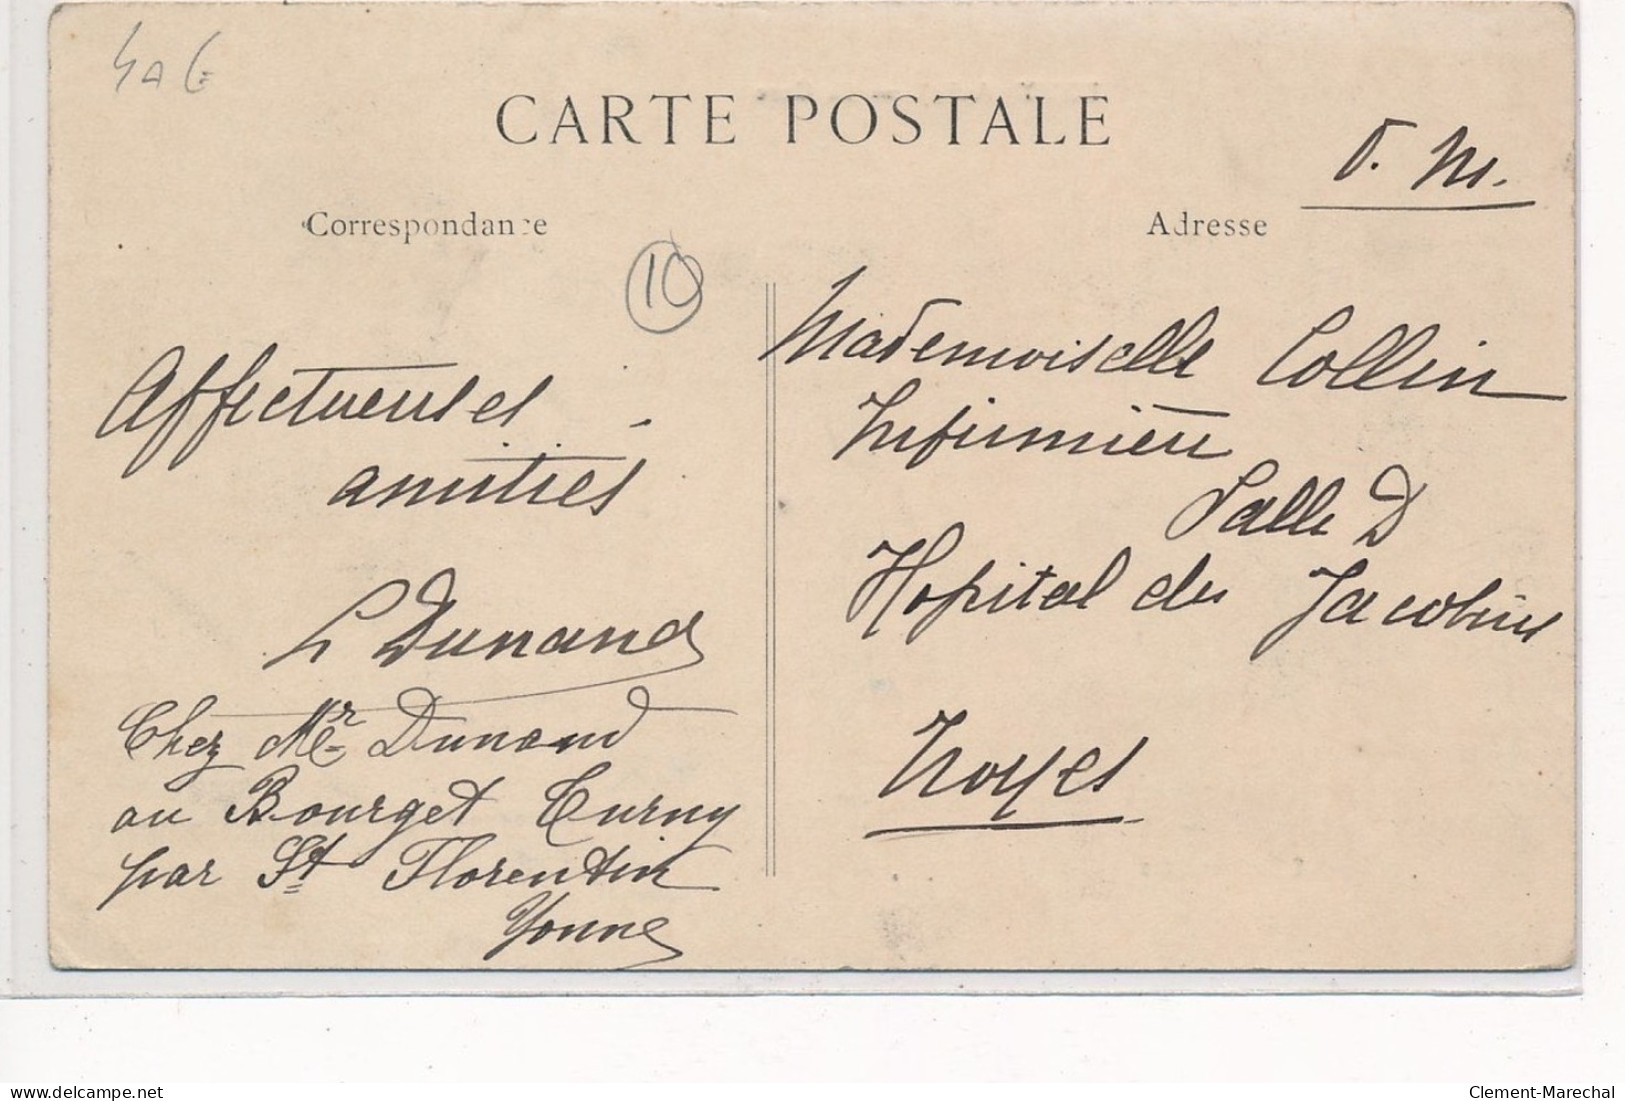 CARTE POSTALE
F. M.
Correspondance
Adresse
10
Affectueuses
amitiés
L Dunand
Chez Mr Dunand
au Bourget Turny
par St Florentin
Yonne
Mademoiselle Collin
Infirmière
Salle D
Hopital des Jacobins
Troyes
Clement-Marechal
www.delcampe.net